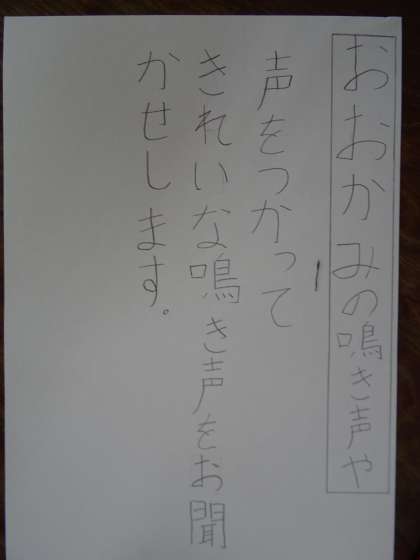 おおかみの鳴き声や
声をつかって
きれいな鳴き声をお聞
かせします。